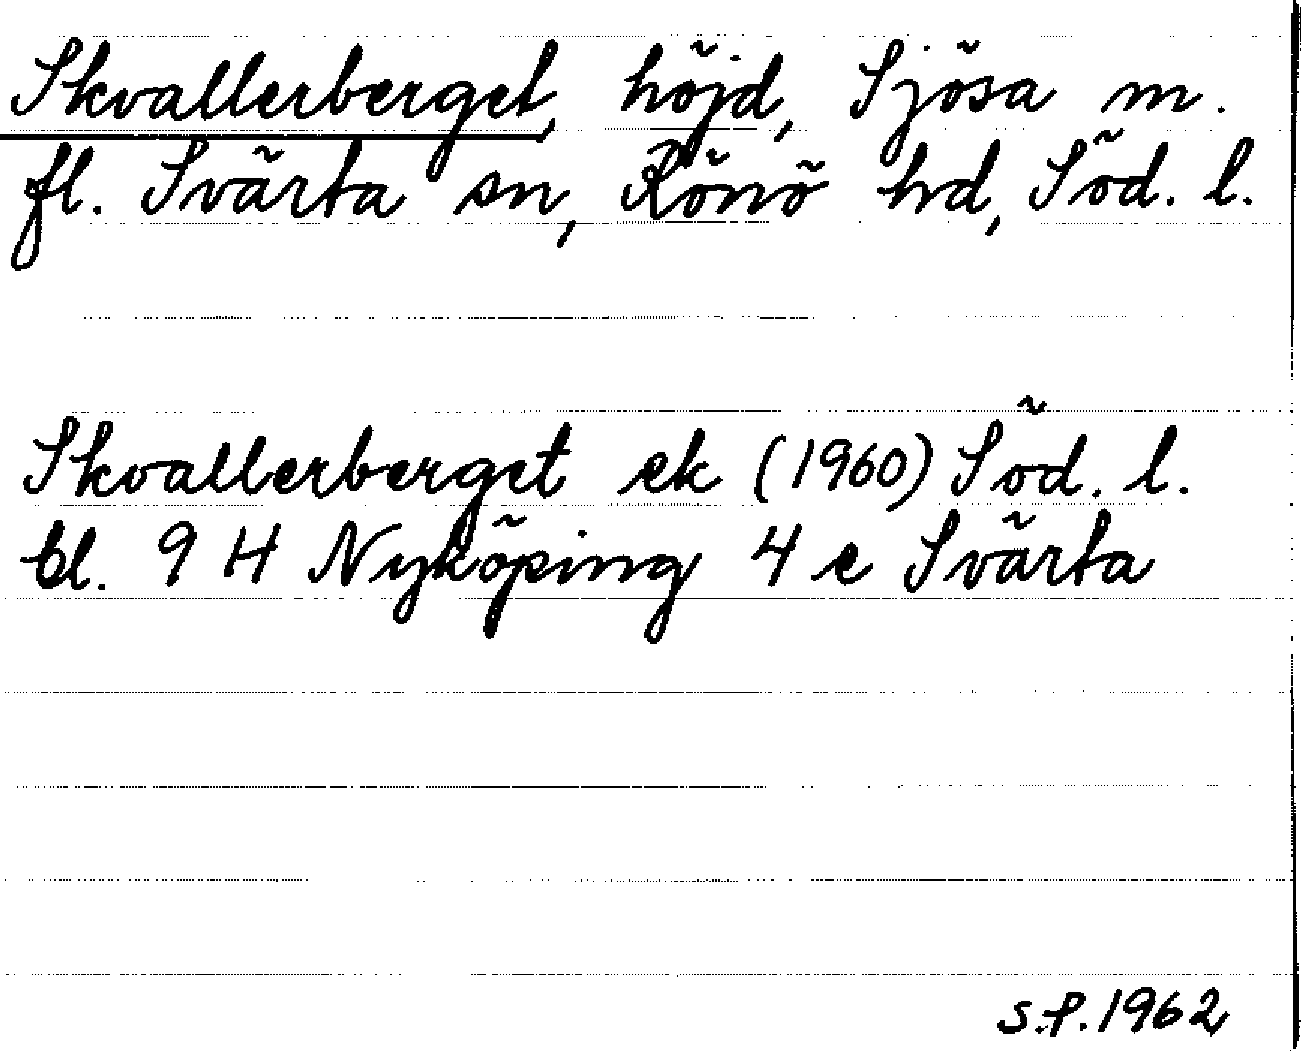 Skvallerberget, höjd, Sjösa m.
fl. Svärta sn, Rönö hd, Söd. l.
Skvallerberget ek (1960) Söd. l.
bl. 9 H Nyköping 4 e Svärta
S.P. 1962